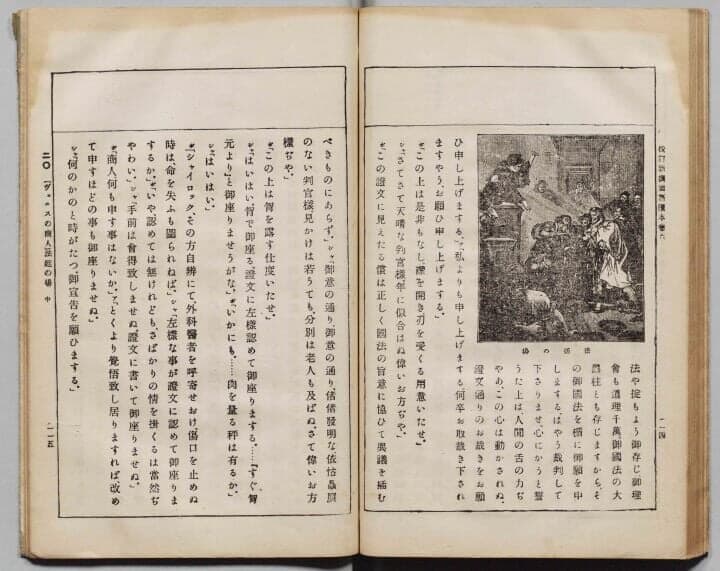 訂新編國語讀本卷六
一一四
法廷の場
法や掟もよう御存じ、御理
會も道理千萬、御國法の大
黑柱とも存じますから、そ
の御國法を楯に御願を申
しまする。はやう裁判して
下さりませ。心にかうと誓
うた上は人間の舌の力ぢ
やあ、この心は動かされぬ。
證文通りのお裁きをお願
ひ申し上げまする。」ア「私よりも申し上げまする。何卒お取裁き下され
ますやう、お願ひ申し上げまする。」
「この上は是非もなし。譟を開き刃を受くる用意いたせ。」
シ「さてさて天晴な判官樣、年に似合はぬ偉いお方ぢや。」
ポ「この證文に見えたる償は正しく國法の旨意に協ひて異議を插む
べきものにあらず。」シ「御意の通り御意の通り、偖偖發明な依怙贔屓
のない判官樣、見かけは若うても、分別は老人も及ばぬ、さて偉いお方
樣ぢや。」
ポ「この上は胷を露す仕度いたせ。」
シ「はいはい、胷で御座る、證文に左樣認めて御座りまする。……『すぐ胷
元より』と御座りませうがな。」ポ「いかにも。……肉を量る秤は有るか。」
シ「はいはい。」
ポ「シャイロック、その方自辨にて、外科醫者を呼寄せおけ、傷口を止めぬ
時は、命を失ふも圖られねば。」シ「左樣な事が證文に認めて御座りま
するか。」ポ「いや認めては無けれども、さばかりの情を掛くるは當然ぢ
やわい。」シ「手前は會得致しませぬ、證文に書いて御座りませぬ。」
ポ「商人、何も申す事はないか。」ア「とくより覺悟致し居りますれば、改め
て申すほどの事も御座りませぬ。」
シ「何のかのと時がたつ、御宣告を願ひまする。」
二〇 「ヴェニスの商人」法廷の場 中
一一五